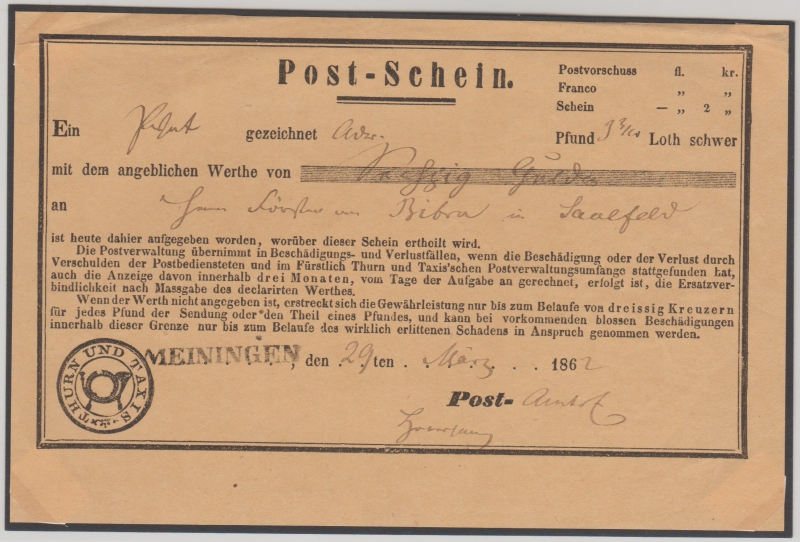 Post-Schein.
Postvorschuss fl. kr.
Franco „ „
Schein — „ 2 „
Ein gezeichnet Adr. Pfund Loth schwer
mit dem angeblichen Werthe von Gulden
an
Herrn Förster von Bibra in Saalfeld
ist heute dahier aufgegeben worden, worüber dieser Schein ertheilt wird.
Die Postverwaltung übernimmt in Beschädigungs- und Verlustfällen, wenn die Beschädigung oder der Verlust durch
Verschulden der Postbediensteten und im Fürstlich Thurn und Taxis'schen Postverwaltungsumfange stattgefunden hat,
auch die Anzeige davon innerhalb drei Monaten, vom Tage der Aufgabe an gerechnet, erfolgt ist, die Ersatzver-
bindlichkeit nach Massgabe des declarirten Werthes.
Wenn der Werth nicht angegeben ist, erstreckt sich die Gewährleistung nur bis zum Belaufe von dreissig Kreuzern
für jedes Pfund der Sendung oder den Theil eines Pfundes, und kann bei vorkommenden blossen Beschädigungen
innerhalb dieser Grenze nur bis zum Belaufe des wirklich erlittenen Schadens in Anspruch genommen werden.
THURN UND TAXIS
MEININGEN, den 29ten März 1862
Post-